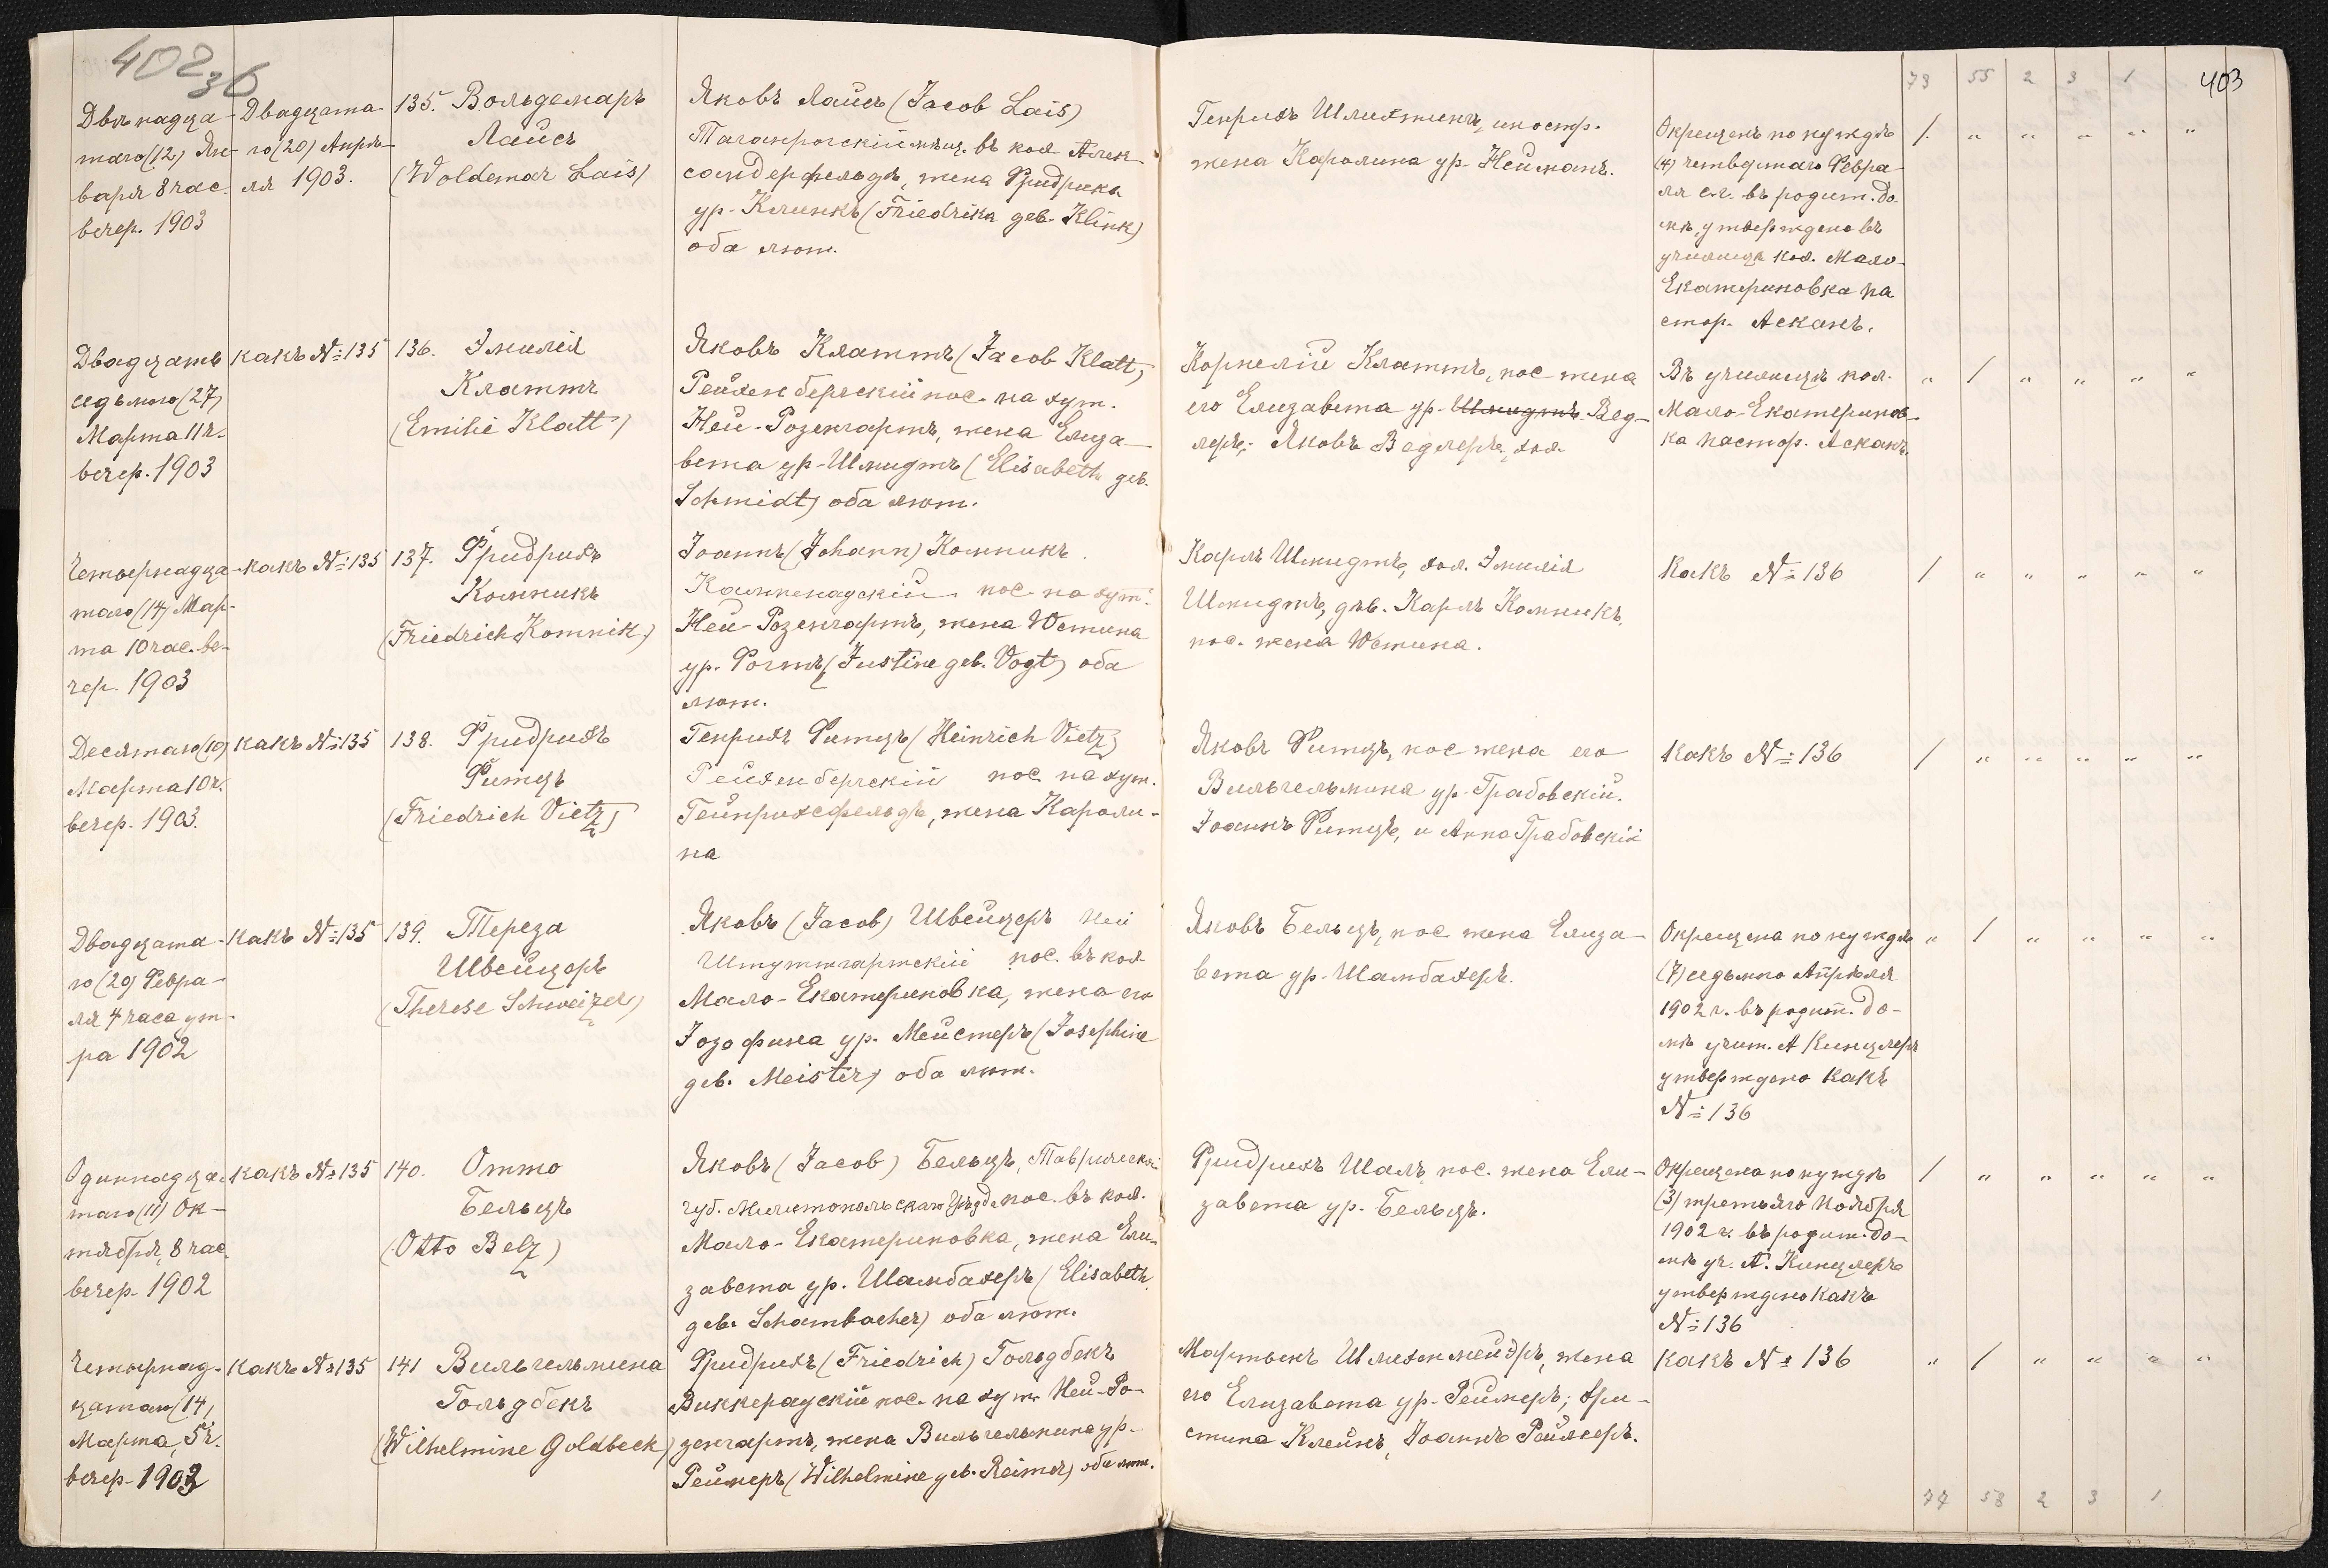 402
36
403
73 55 2 3 1
Двѣнадца-
таго (12) Ян-
варя 8 час.
вечер. 1903
Двадцата-
го (20) Апрѣ-
ля 1903.
135. Вольдемаръ
Лайсъ
(Woldemar Lais)
Яковъ Лайсъ (Jacob Lais)
Таганрогскій мѣщ. въ кол Алек-
сандерфельдъ, жена Фридрика
ур. Клинкъ (Friedrika geb. Klink)
оба лют.
Генрихъ Шлихтингъ, иностр.
жена Каролина ур. Нейманъ.
Окрещенъ по нуждѣ
(4) четвертаго Февра-
ля с.г. въ родит. до-
мѣ, утверждено въ
училищѣ кол. Мало-
Екатериновка па
стор. Асканъ.
/. " " " " "
Двадцать
седьмого (27)
Марта 11 ч.
вечер. 1903
какъ №135
136. Эмилія
Клаттъ
(Emilie Klatt)
Яковъ Клаттъ (Jacob Klatt)
Рейхенбергскій пос. на хут.
Ней-Розенгартъ, жена Елиза-
вета ур. Шмидтъ (Elisabeth geb.
Schmidt) оба лют.
Корнелій Клаттъ, пос жена
его Елизавета ур. Шмидтъ Вед-
леръ; Яковъ Ведлеръ, хол
Въ училищѣ кол.
Мало-Екатеринов-
ка пастор. Асканъ.
" / " " " "
Четырнадца-
таго (14) Мар-
та 10 час. ве-
чер. 1903
какъ №135
137. Фридрихъ
Комникъ
(Friedrich Komnik)
Іоаннъ (Johann) Комникъ
Кампенауской пос. на хут.
Ней-Розенгартъ, жена Юстина
ур. Фогтъ (Justine geb. Vogt) оба
лют.
Карлъ Шмидтъ, хол. Эмилія
Шмидтъ, дѣв. Карлъ Комникъ,
пос. жена Юстина.
Какъ №136
/ " " " " "
Десятаго (10)
Марта 10 ч.
вечер. 1903.
какъ №135
138. Фридрихъ
Фитцъ
(Friedrich Vietz)
Генрихъ Фитцъ (Heinrich Vietz)
Рейхенбергскій пос. на хут.
Гейнрихсфельдъ, жена Кароли-
на
Яковъ Фитцъ, пос жена его
Вильгельмина ур. Грабовскій.
Іоаннъ Фитцъ, и Анна Грабовскій
Какъ №136
/ " " " " "
Двадцата-
го (20) Февра-
ля 4 часа ут-
ра 1902
какъ №135
139. Тереза
Швейцеръ
(Therese Schweizer)
Яковъ (Jacob) Швейцеръ Ней
Штуттгартскій пос. въ кол
Мало-Екатериновка, жена его
Іозофина ур. Мейстеръ (Josephine
geb. Meister) оба лют.
Яковъ Бельцъ, пос жена Елиза-
вета ур. Шамбахеръ.
Окрещена по нуждѣ
(7) седьмого Апрѣля
1902 г. въ родит. до-
мѣ учит. А Кинцлеръ
утверждено какъ
№136
" / " " " "
Одиннадца-
таго (11) Ок-
тября, 8 час.
вечер. 1902
какъ №135
140. Отто
Бельцъ
(Otto Belz)
Яковъ (Jacob) Бельцъ, Таврической
губ. Мелитопольскаго уѣзда пос. въ кол.
Мало-Екатериновка, жена Ели-
завета ур. Шамбахеръ (Elisabeth
geb. Schambacher) оба лют.
Фридрихъ Шаль, пос. жена Ели-
завета ур. Бельцъ.
Окрещена по нуждѣ
(3) третьяго Ноября
1902 г. въ родит. до-
мѣ уч. А. Кинцлеръ
утверждено какъ
№136
/ " " " " "
Четырнад-
цатаго (14)
Марта, 5 ч.
вечер. 1903
какъ №135
141 Вильгельмина
Гольдбекъ
(Wilhelmine Goldbeck)
Фридрихъ (Friedrich) Гольдбекъ
Виккерауской пос. на хут. Ней-Ро-
зенгартъ, жена Вильгельмина ур.
Реймеръ (Wilhelmine geb. Reimer) оба лют.
жена
его Елизавета ур. Реймеръ; Хри-
стина Клейнъ, Іоаннъ Реймеръ.
какъ № 136
" / " " " "
77 58 2 3 1